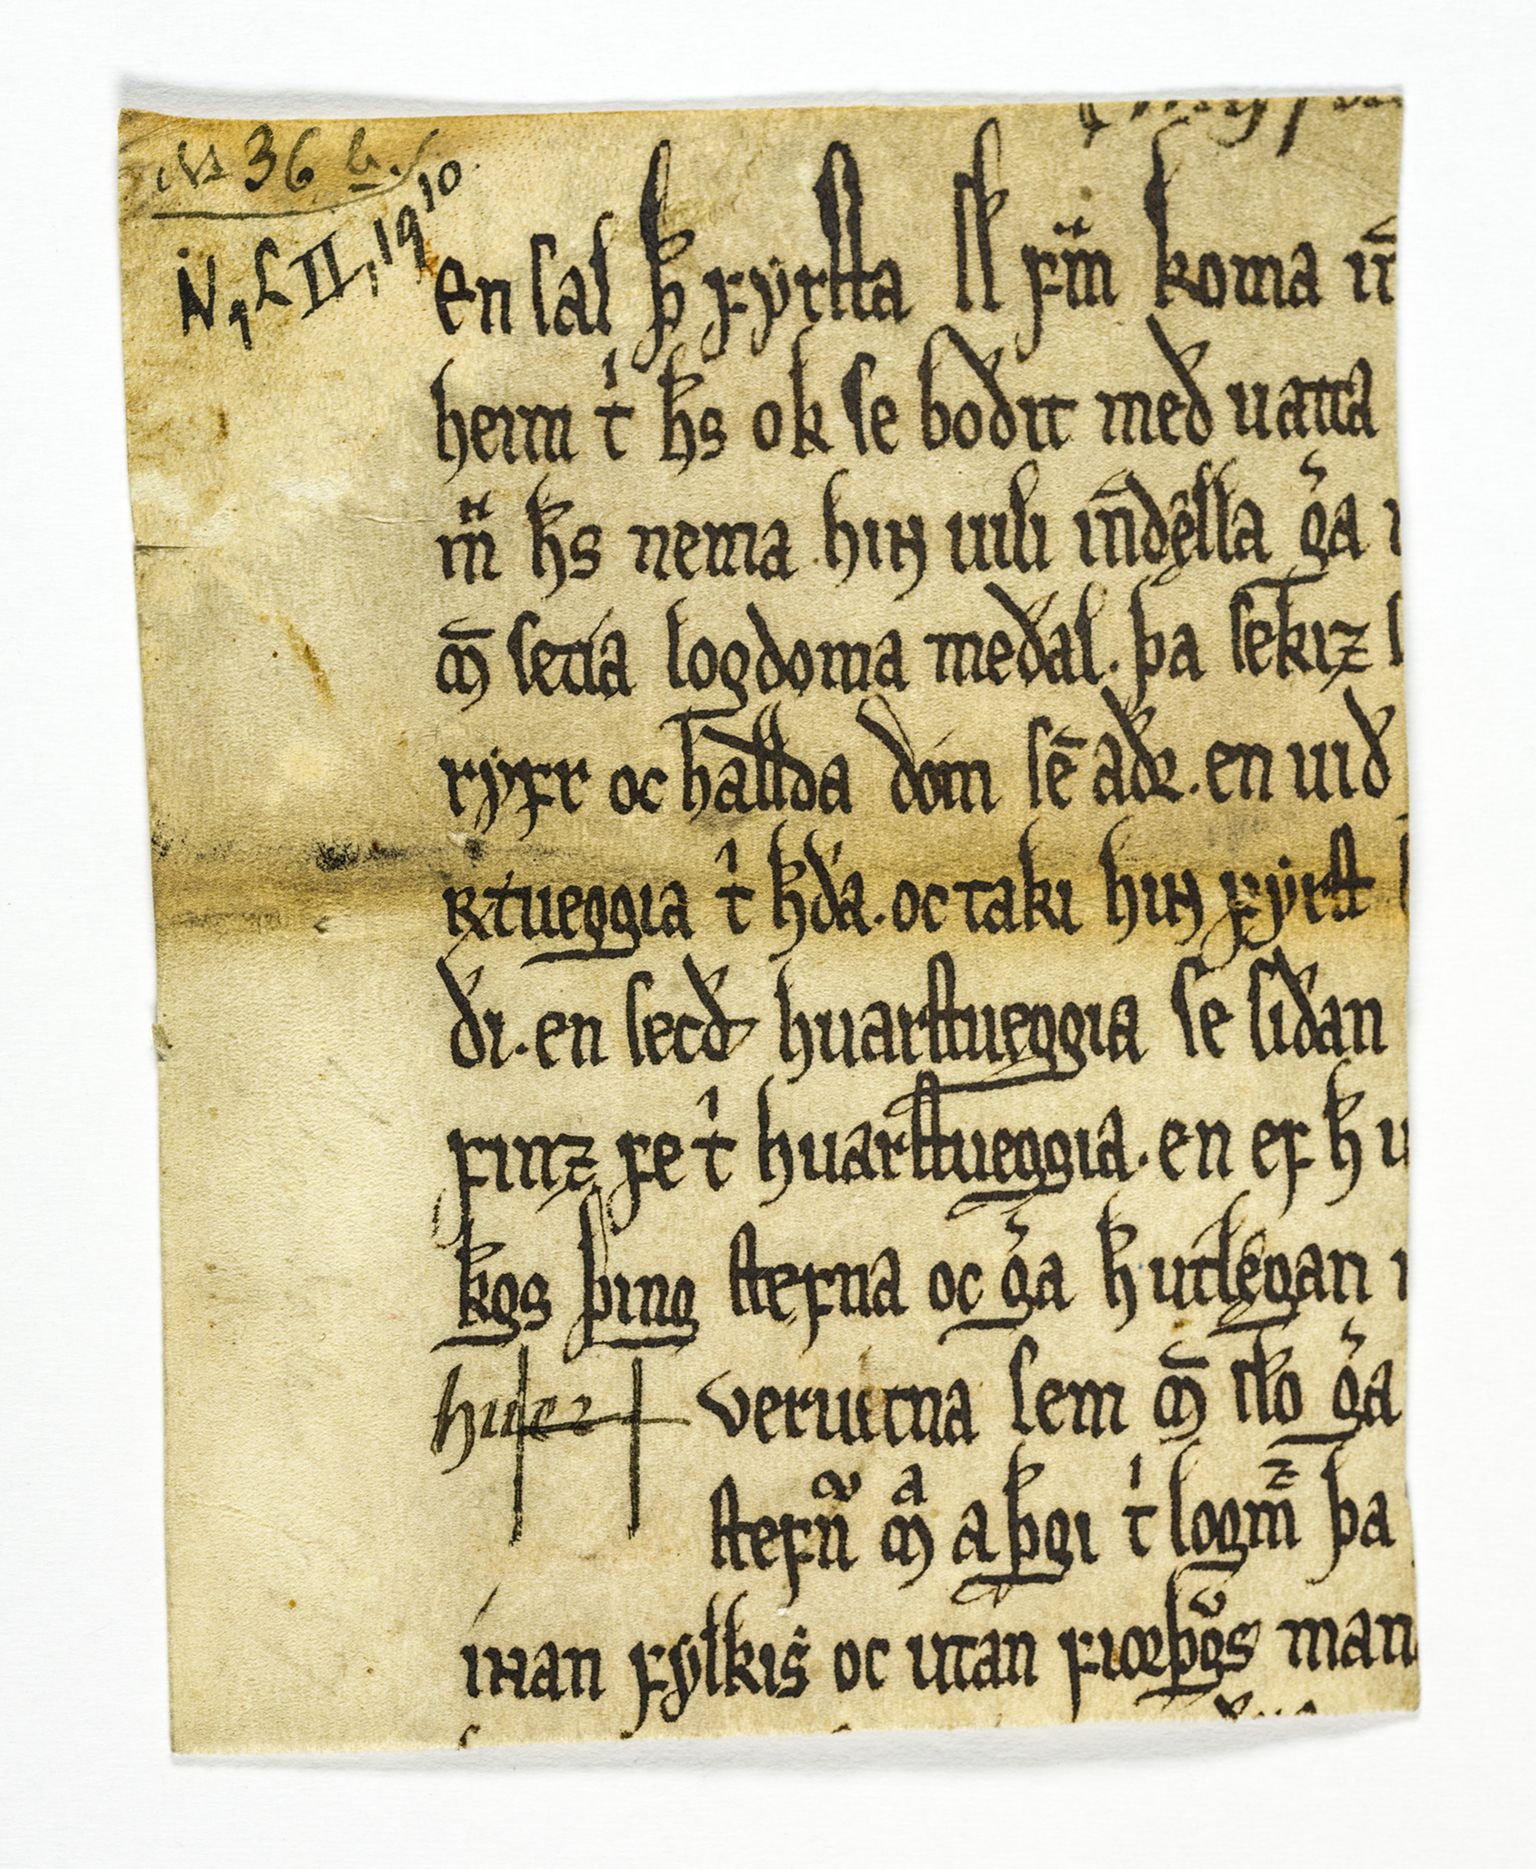 № 36 b.
NgL II, 19¹⁰
en sal þ̄ fyrsta sl fim̄ koma
heim t' h̄s ok se boðit með uatta
h̄s nema hiɴ uili in̄dęlla g̉a
m̄ setia logdoma meðal. þa sekiz
ryfr oc hallda dóm sē aðꝛ. en uið
ʀtueggia t' h̄ða. oc taki hiɴ fyrst
ði. en secð huarstueggia se siðan
finz fe t' huarstueggia. en ef h̄
kgs þing stefna oc g̉a h̄ utlęgan
huser veruitna sem m̄ sko g̉a
stefn̄ mᵃ a þgi t' logm̄ þa
iɴan fylkis oc utan fiorþgs man